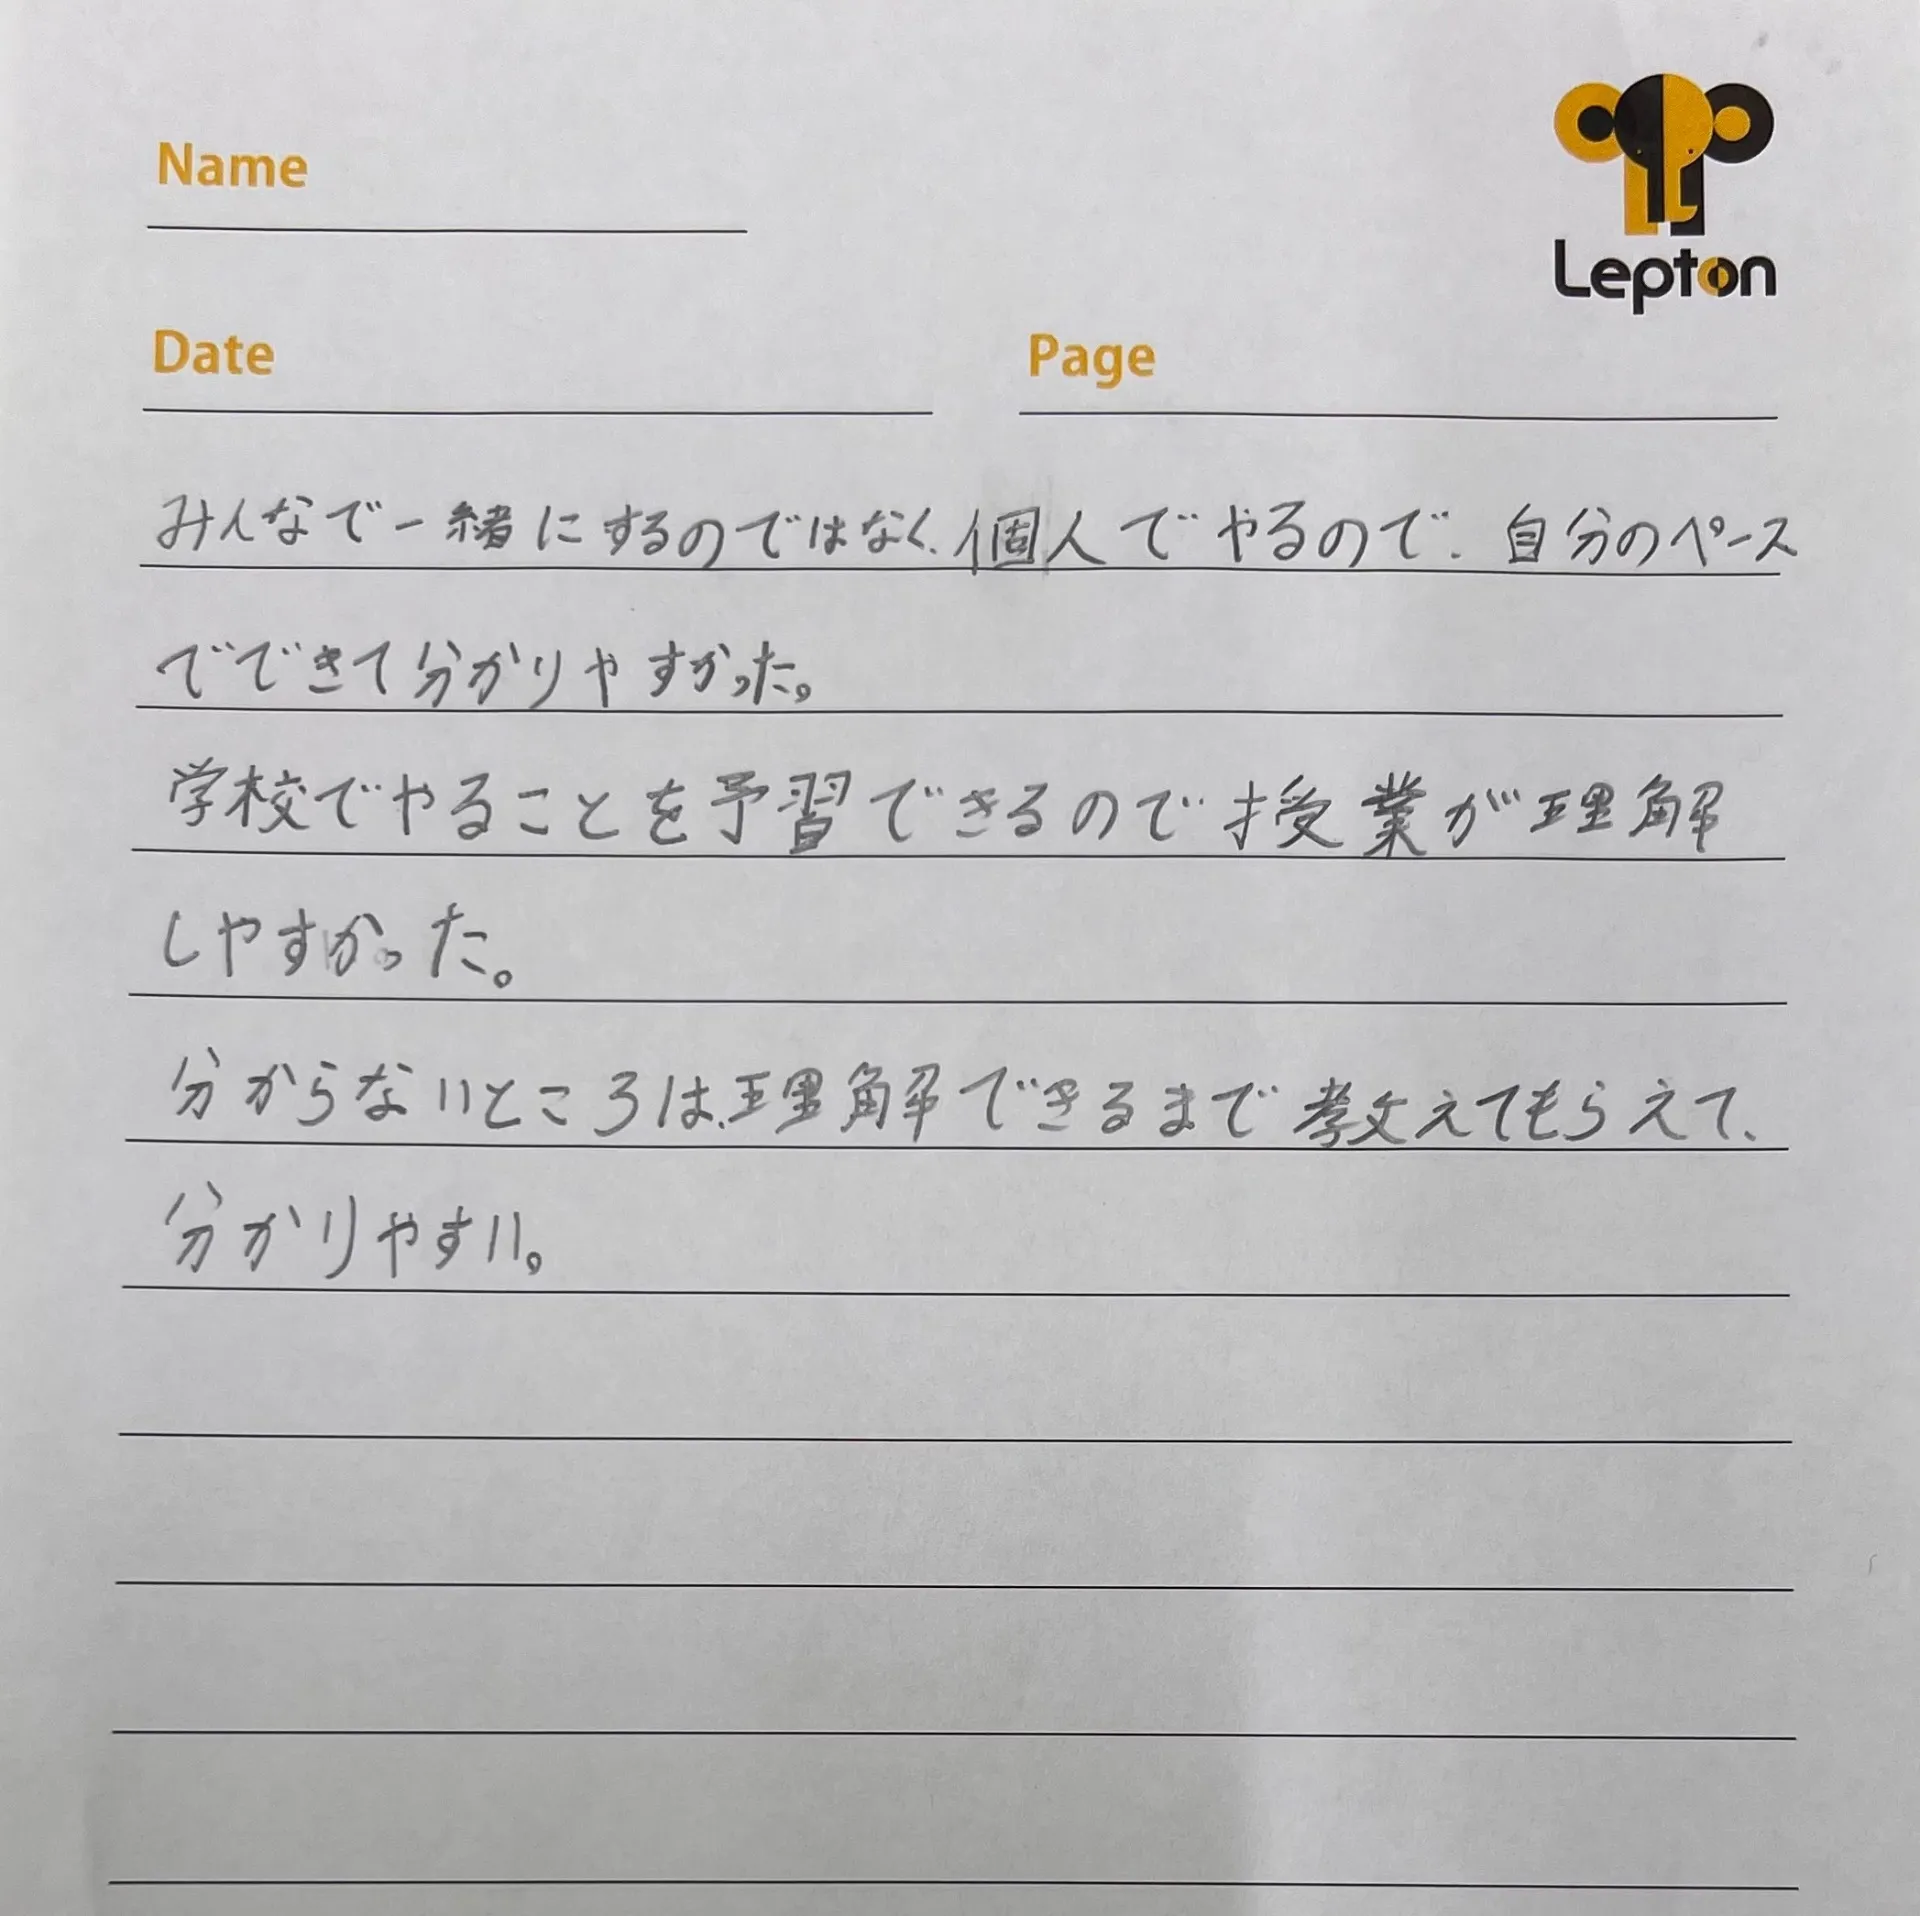 Name
Lepton
Date Page
みんなで一緒にするのではなく、個人でやるので、自分のペース
でできて分かりやすかった。
学校でやることを予習できるので授業が理解
しやすかった。
分からないところは、理解できるまで教えてもらえて、
分かりやすい。